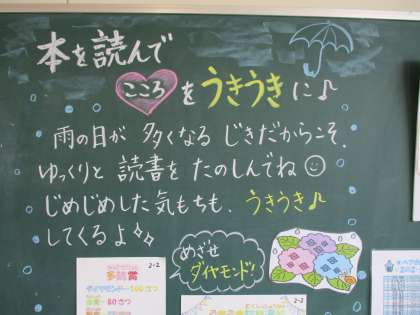 本を読んで
こころをうきうきに♪
雨の日が 多くなる じきだからこそ、
ゆっくりと 読書を たのしんでね☺
じめじめした 気もちも、うきうき♪
してくるよ
めざせ
ダイヤモンド!
2-2
多読賞
2-2